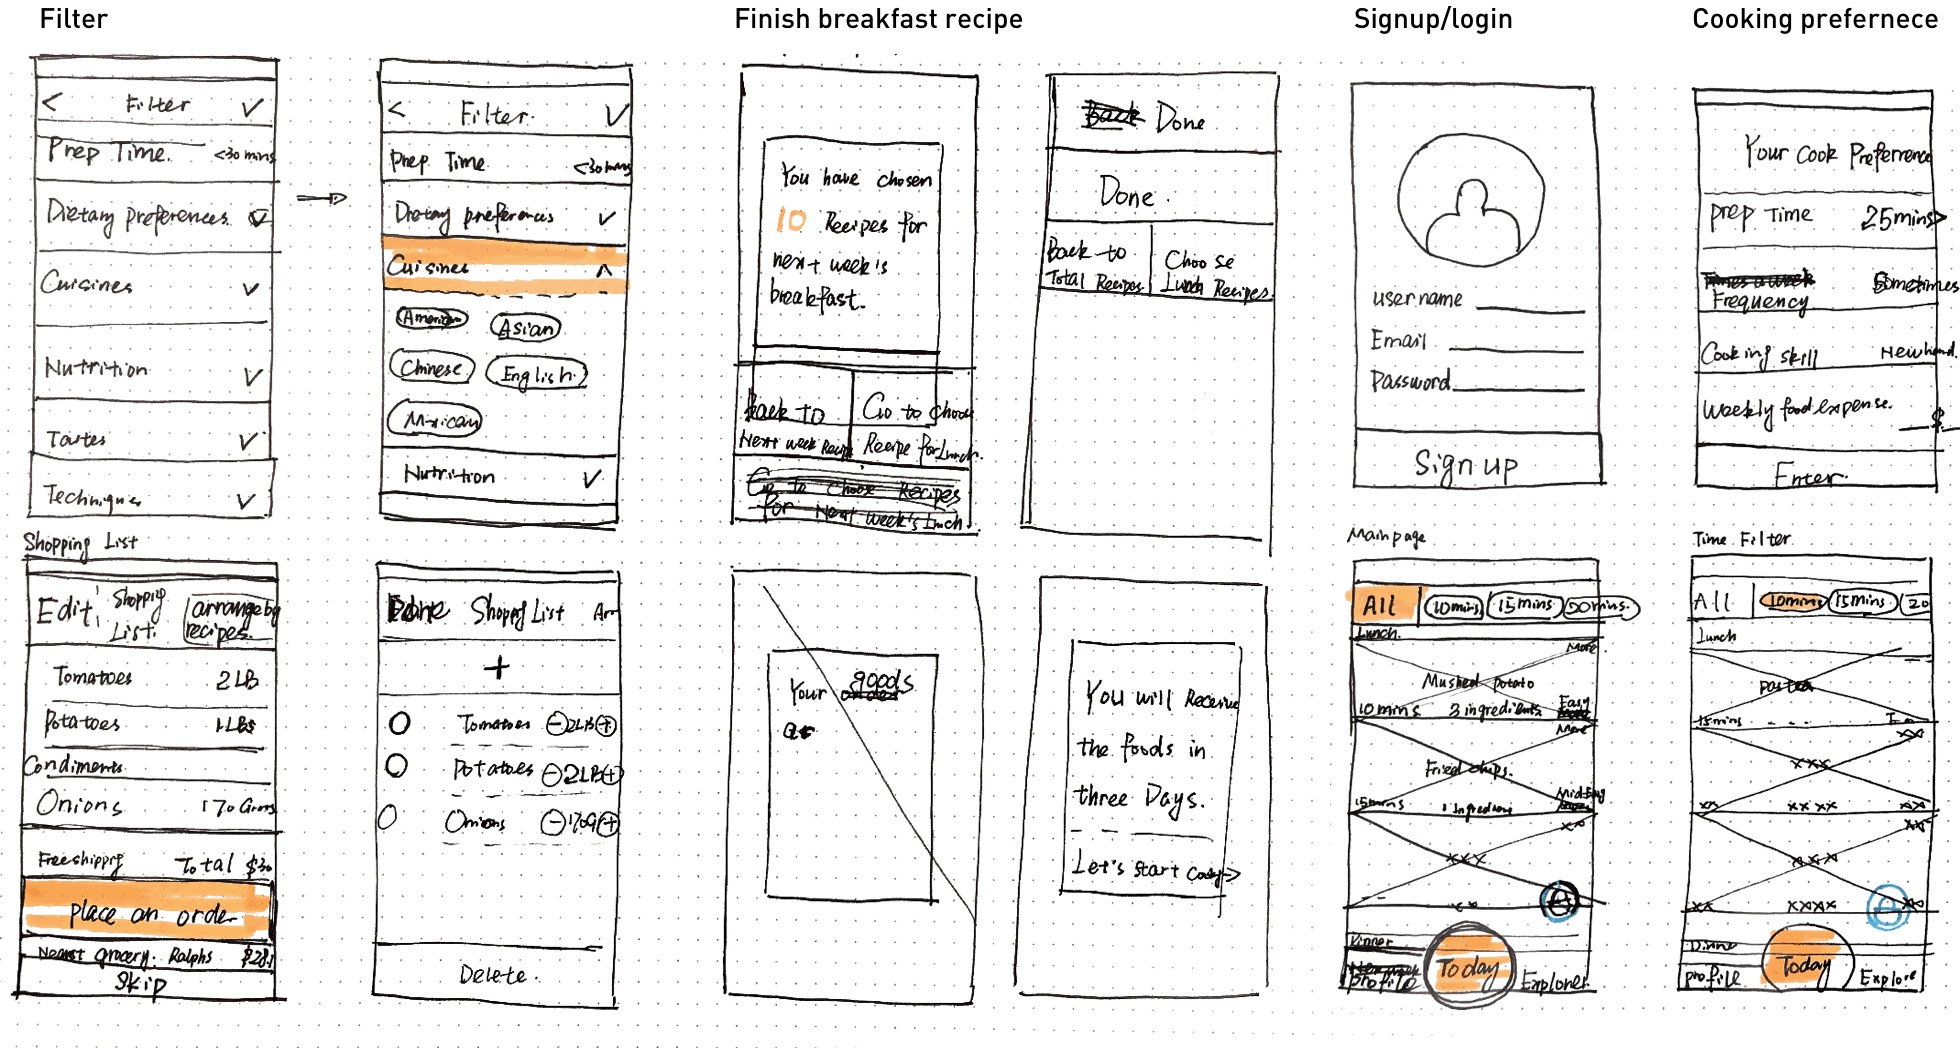 Filter
Finish breakfast recipe
Signup/login
Cooking prefernece
< Filter
Prep Time. <30 mins
Dietary preferences
Cuisines
Nutrition
Tastes
Techniques
< Filter.
Prep Time <30 mins
Dietary preferences
Cuisines
American Asian
Chinese English
Mexican
Nutrition
You have chosen
10 Recipes for
next week's
breakfast.
Back to
Next week Recipe
Go to choose
Recipe for Lunch.
Go to choose Recipes
for Next week's Lunch
Back Done
Done.
Back to
Total Recipes
Choose
Lunch Recipes.
username
Email
Password
Sign up
Your Cook Preference
prep Time 25mins>
Times a week
Frequency Sometimes
Cooking skill Newhand.
Weekly food expense. $
Enter.
Shopping List
Edit
Shopping
List.
arrange by
recipes.
Tomatoes 2LB
Potatoes 1LBs
Condiments
Onions 170 Grams
Free shipping Total $30
place an order
Nearest grocery: Ralphs
Skip
Done Shoppg List Arr
+
Tomatoes 2LB
Potatoes 2LB
Onions 170G
Delete.
Your goods
You will Receive
the foods in
three Days.
Let's start
Main page
All 10mins 15mins 20mins.
Lunch.
More
Mushed potato
10 mins 3 ingredients Easy
More
Fried chips.
15mins 1 Ingredient
xx
xxx
xx
Dinner
profile Today Explorer
Time Filter
All 10mins 15mins 20
Lunch
pasta
15mins
xx
xxx
xx xxxx xx
xx
xxx
xx xxxx xx
Dinner
profile Today Explore